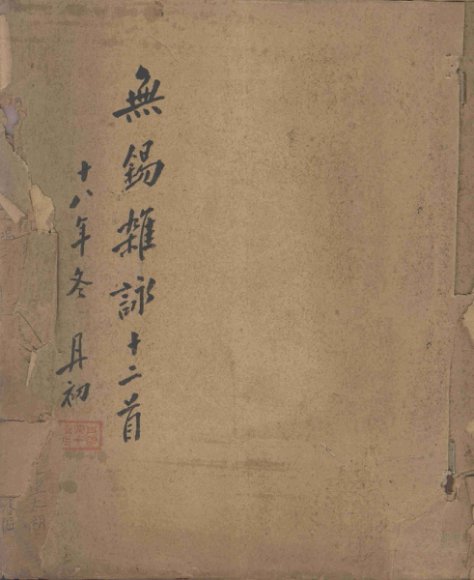 無錫雜詠十二首
十八年冬 丹初